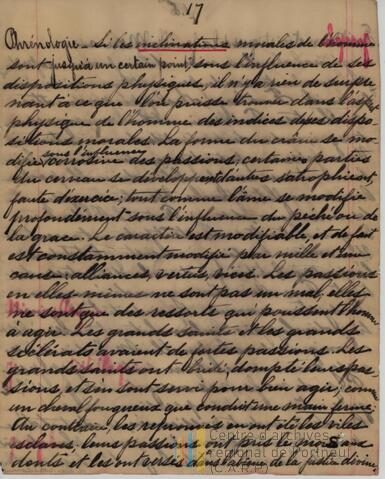 17
Phrénologie. Si les inclinations morales de l'homme
sont jusqu'à un certain point, sous l'influence de ses
dispositions physiques, il n'y a rien de surpre
nant à ce que l'on puisse trouver dans l'aspect
physique de l'homme des indices de ses dispo
sitions morales. La forme du crâne se mo
difie sous l'influence corrosive des passions, certaines parties
du cerveau se développent, d'autres s'atrophient,
faute d'exercice; tout comme l'âme se modifie
profondément sous l'influence du péché ou de
la grace. Le caractère est modifiable, et de fait
est constamment modifié par mille et une
cause: alliances, vertus, vices. Les passions
en elles mêmes ne sont pas un mal, elles
ne sont que des ressorts qui poussent l'homme
à agir. Les grands saints et les grands
scélérats avaient de fortes passions. Les
grands saints ont dompté leurs pas
sions, et s'en sont servi pour bien agir: comme
un cheval fougueux que conduit une main ferme.
Au contraire, les en ont été les viles
esclaves, leurs passions ont pris le mors aux
dents et les ont versés dans l'abîme de la justice divine.
Centre d'archives
régional de Portneuf
(C.A.R.P.)